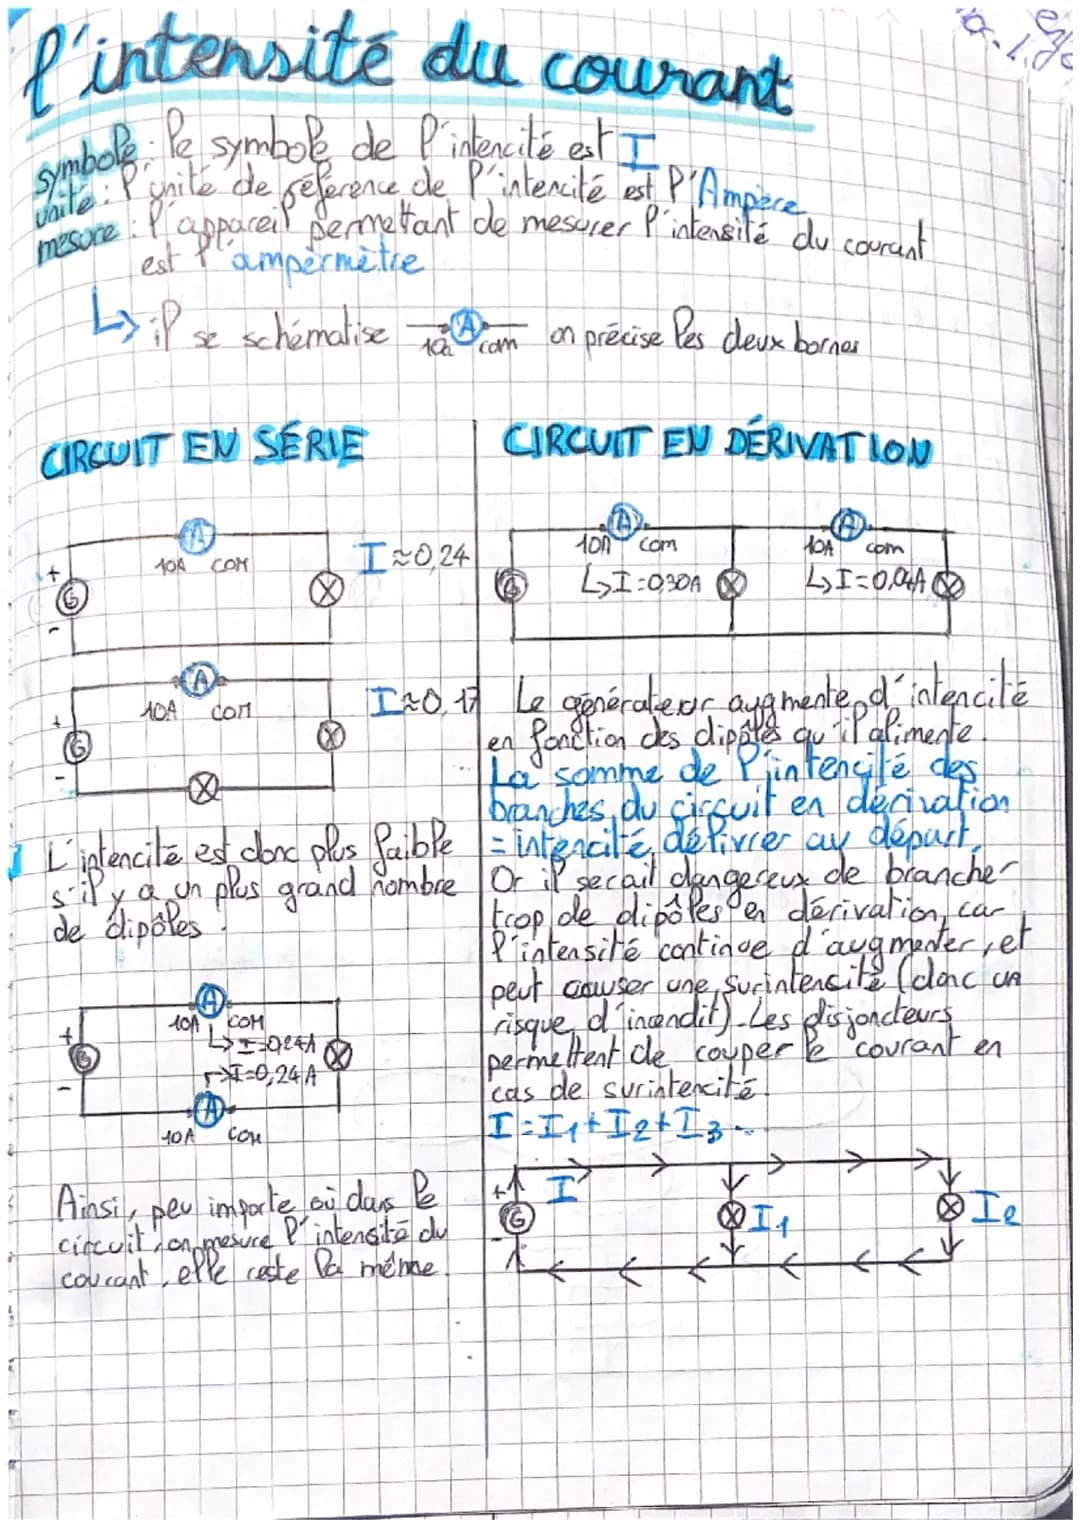 l'intensité du courant
symbole : le symbole de l'intencité est I
unité : l'unité de référence de l'intencité est l'Ampère
mesure : l'appareil permettant de mesurer l'intensité du courant
est l'ampèrmètre
↳ il se schématise A 10a com on précise les deux bornes
CIRCUIT EN SÉRIE
A
10A COM
+
G
-
I≈0,24
A
10A COM
+
G
-
I≈0,17
L'intencité est donc plus faible
s'il y a un plus grand nombre
de dipôles.
A
10A COM
↳I=0,24A
+
G
-
I=0,24A
A
10A COM
Ainsi, peu importe où dans le
circuit, on mesure l'intensité du
courant, elle reste la même.
CIRCUIT EN DÉRIVATION
A A
10A com 10A com
↳I=0,30A ↳I=0,04A
G
Le générateur augmente d'intencité
en fonction des dipôles qu'il alimente.
La somme de l'intencité des
branches du circuit en dérivation
= intencité délivrer au départ.
Or il serait dangereux de brancher
trop de dipôles en dérivation, car
l'intensité continue d'augmenter, et
peut causer une surintensité (donc un
risque d'incendit). Les disjoncteurs
permettent de couper le courant en
cas de surintencité.
I=I1+I2+I3...
+ I
G I1 I2
-